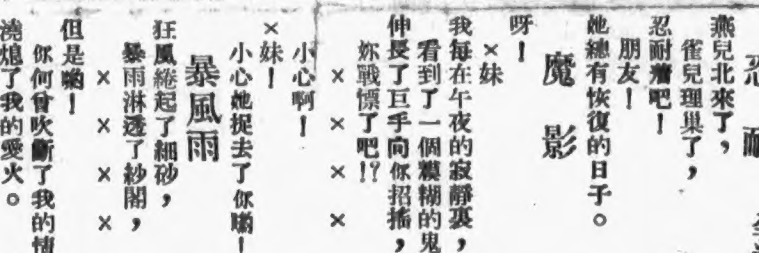 忍耐
燕兒北來了，
雀兒理巢了，
忍耐着吧！
朋友！
她總有恢復的日子。
魔影
呀！
×妹
我每在午夜的寂靜裏，
看到了一個糢糊的鬼
伸長了巨手向你招搖，
妳戰慓了吧!?
× × × ×
小心啊！
×妹！
小心她捉去了你喲！
暴風雨
狂風綣起了細砂，
暴雨淋透了紗閣，
× × × ×
但是喲！
你何曾吹斷了我的情
澆熄了我的愛火。